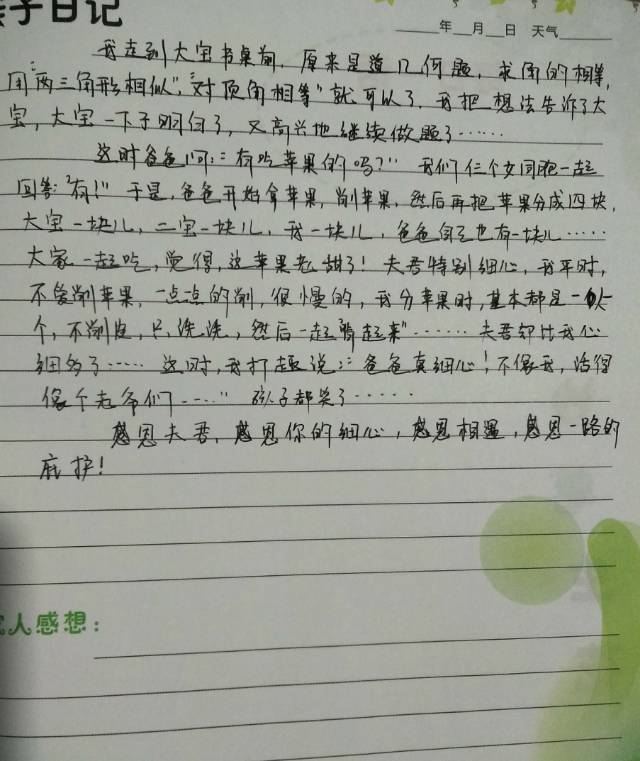 子日记
年 月 日 天气
我走到大宝书桌前，原来是道几何题，求角的相等，
用“两三角形相似”，“对顶角相等”就可以了，我把想法告诉了大
宝，大宝一下子明白了，又高兴地继续做题了……
这时爸爸问：“有吃苹果的吗？” 我们仨个女同胞一起
回答：“有！” 于是，爸爸开始拿苹果，削苹果，然后再把苹果分成四块，
大宝一块儿，二宝一块儿，我一块儿，爸爸自己也有一块儿……
大家一起吃，觉得，这苹果老甜了！夫君特别细心，我平时，
不爱削苹果，一点点的削，很慢的，我分苹果时，基本都是一人
个，不削皮，只洗洗，然后一起啃起来”……夫君却比我心
细多了……这时，我打趣说：“爸爸真细心！不像我，活得
像个老爷们……” 孩子都笑了……
感恩夫君，感恩你的细心，感恩相遇，感恩一路的
庇护！
人感想：